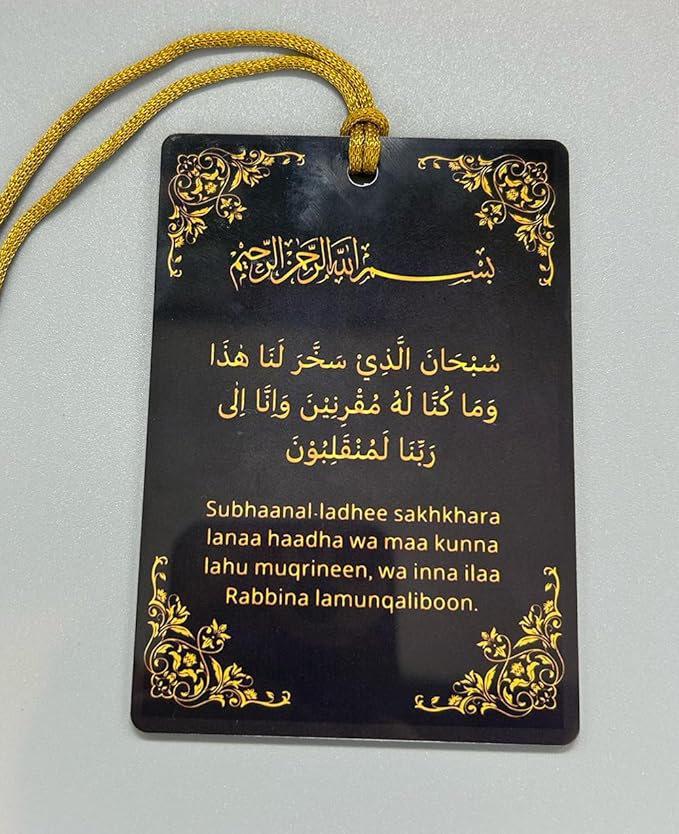 بسم الله الرحمن الرحيم
سُبْحَانَ الَّذِيْ سَخَّرَ لَنَا هٰذَا
وَمَا كُنَّا لَهُ مُقْرِنِيْنَ وَاِنَّا اِلٰى
رَبِّنَا لَمُنْقَلِبُوْنَ
Subhaanal-ladhee sakhkhara
lanaa haadha wa maa kunna
lahu muqrineen, wa inna ilaa
Rabbina lamunqaliboon.